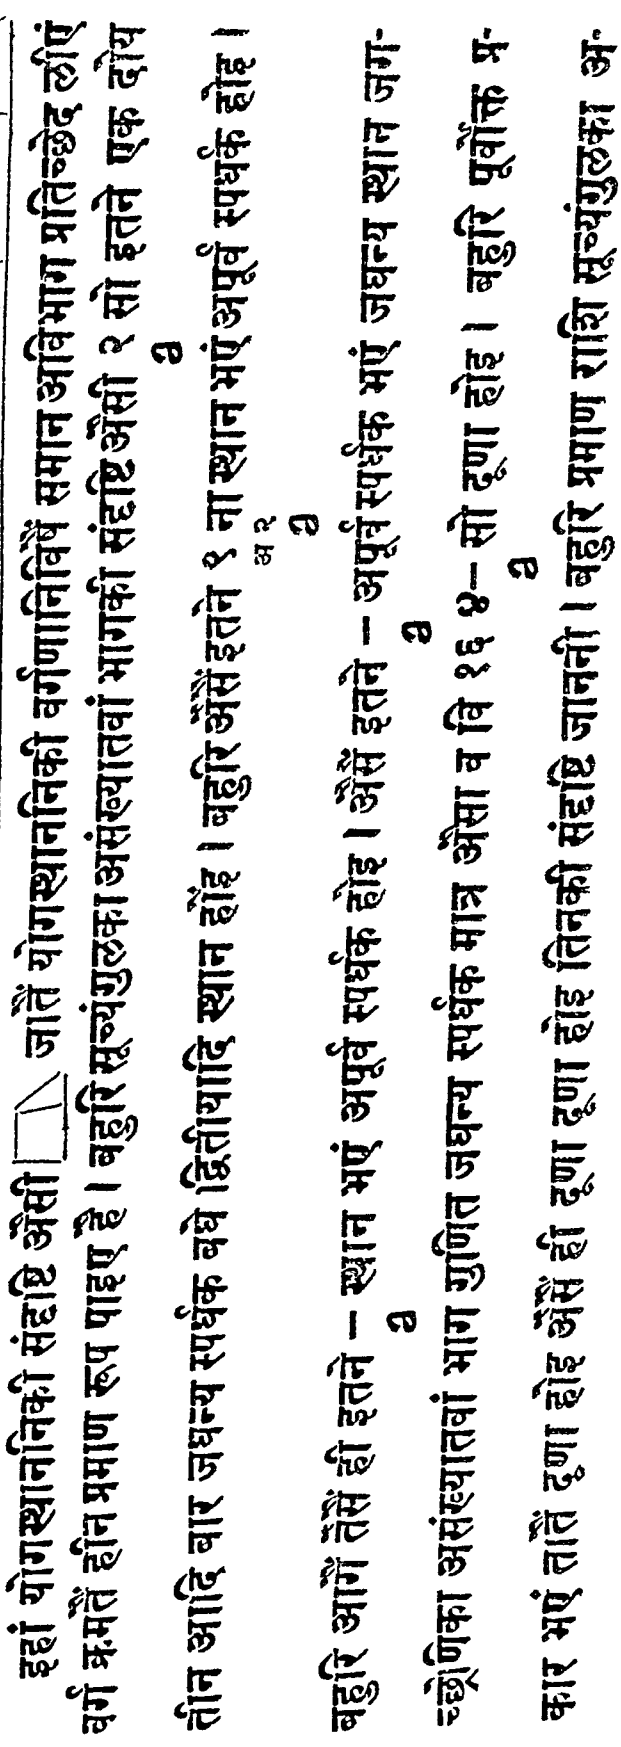 इहां योगस्थाननिकी संदृष्टि अैसी जातैं योगस्थाननिकी वर्गणानिविषैं समान अविभाग प्रतिच्छेद लीएं
वर्ग क्रमतैं हीन प्रमाण रूप पाइए है । बहुरि सूच्यंगुलका असंख्यातवां भागकी संदृष्टि अैसी २ सो इतने एक दोय
a
तीन आदि बार जघन्य स्पर्धक बधे द्वितीयादि स्थान होंइ । बहुरि अैसैं इतने १ ना स्थान भएं अपूर्व स्पर्धक होइ ।
अ २
a
बहुरि आगैं तैसैं ही इतने – स्थान भएं अपूर्व स्पर्धक होइ । अैसैं इतने – अपूर्व स्पर्धक भएं जघन्य स्थान जग-
a a
च्छ्रेणिका असंख्यातवां भाग गुणित जघन्य स्पर्धक मात्र अैसा व वि १६ ४– सो दूणा होइ । बहुरि पूर्वोक्त प्र-
a
कार भएं तातैं दूणा होइ अैसैं ही दूणा दूणा होइ तिनकी संदृष्टि जाननी । बहुरि प्रमाण राशि सूच्यंगुलका अ-